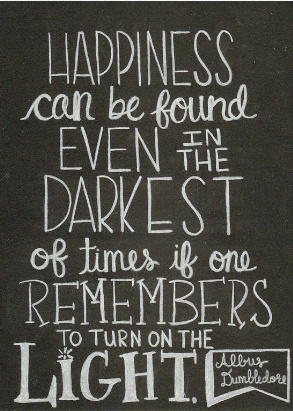 HAPPINESS
can be found
EVEN IN THE
DARKEST
of times if one
REMEMBERS
TO TURN ON THE
LiGHT.
Albus
Dumbledore